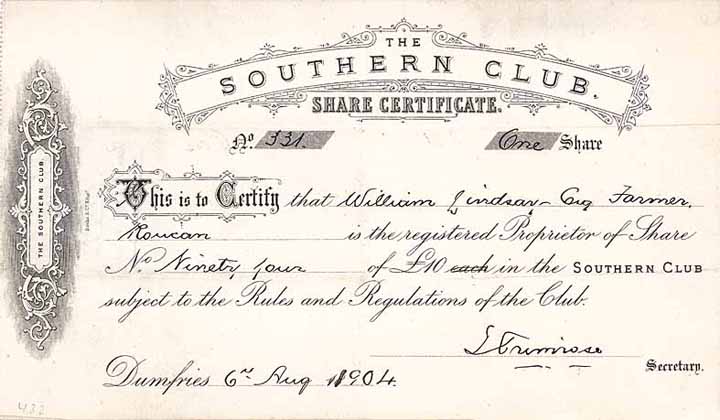 THE
SOUTHERN CLUB.
SHARE CERTIFICATE.
No. 331. One Share
This is to Certify that William Lindsay Esq Farmer,
Roucan is the registered Proprietor of Share
No. Ninety four of £10 each in the SOUTHERN CLUB
subject to the Rules and Regulations of the Club.
Primrose
Secretary.
Dumfries 6th Aug 1904.
THE SOUTHERN CLUB.
433